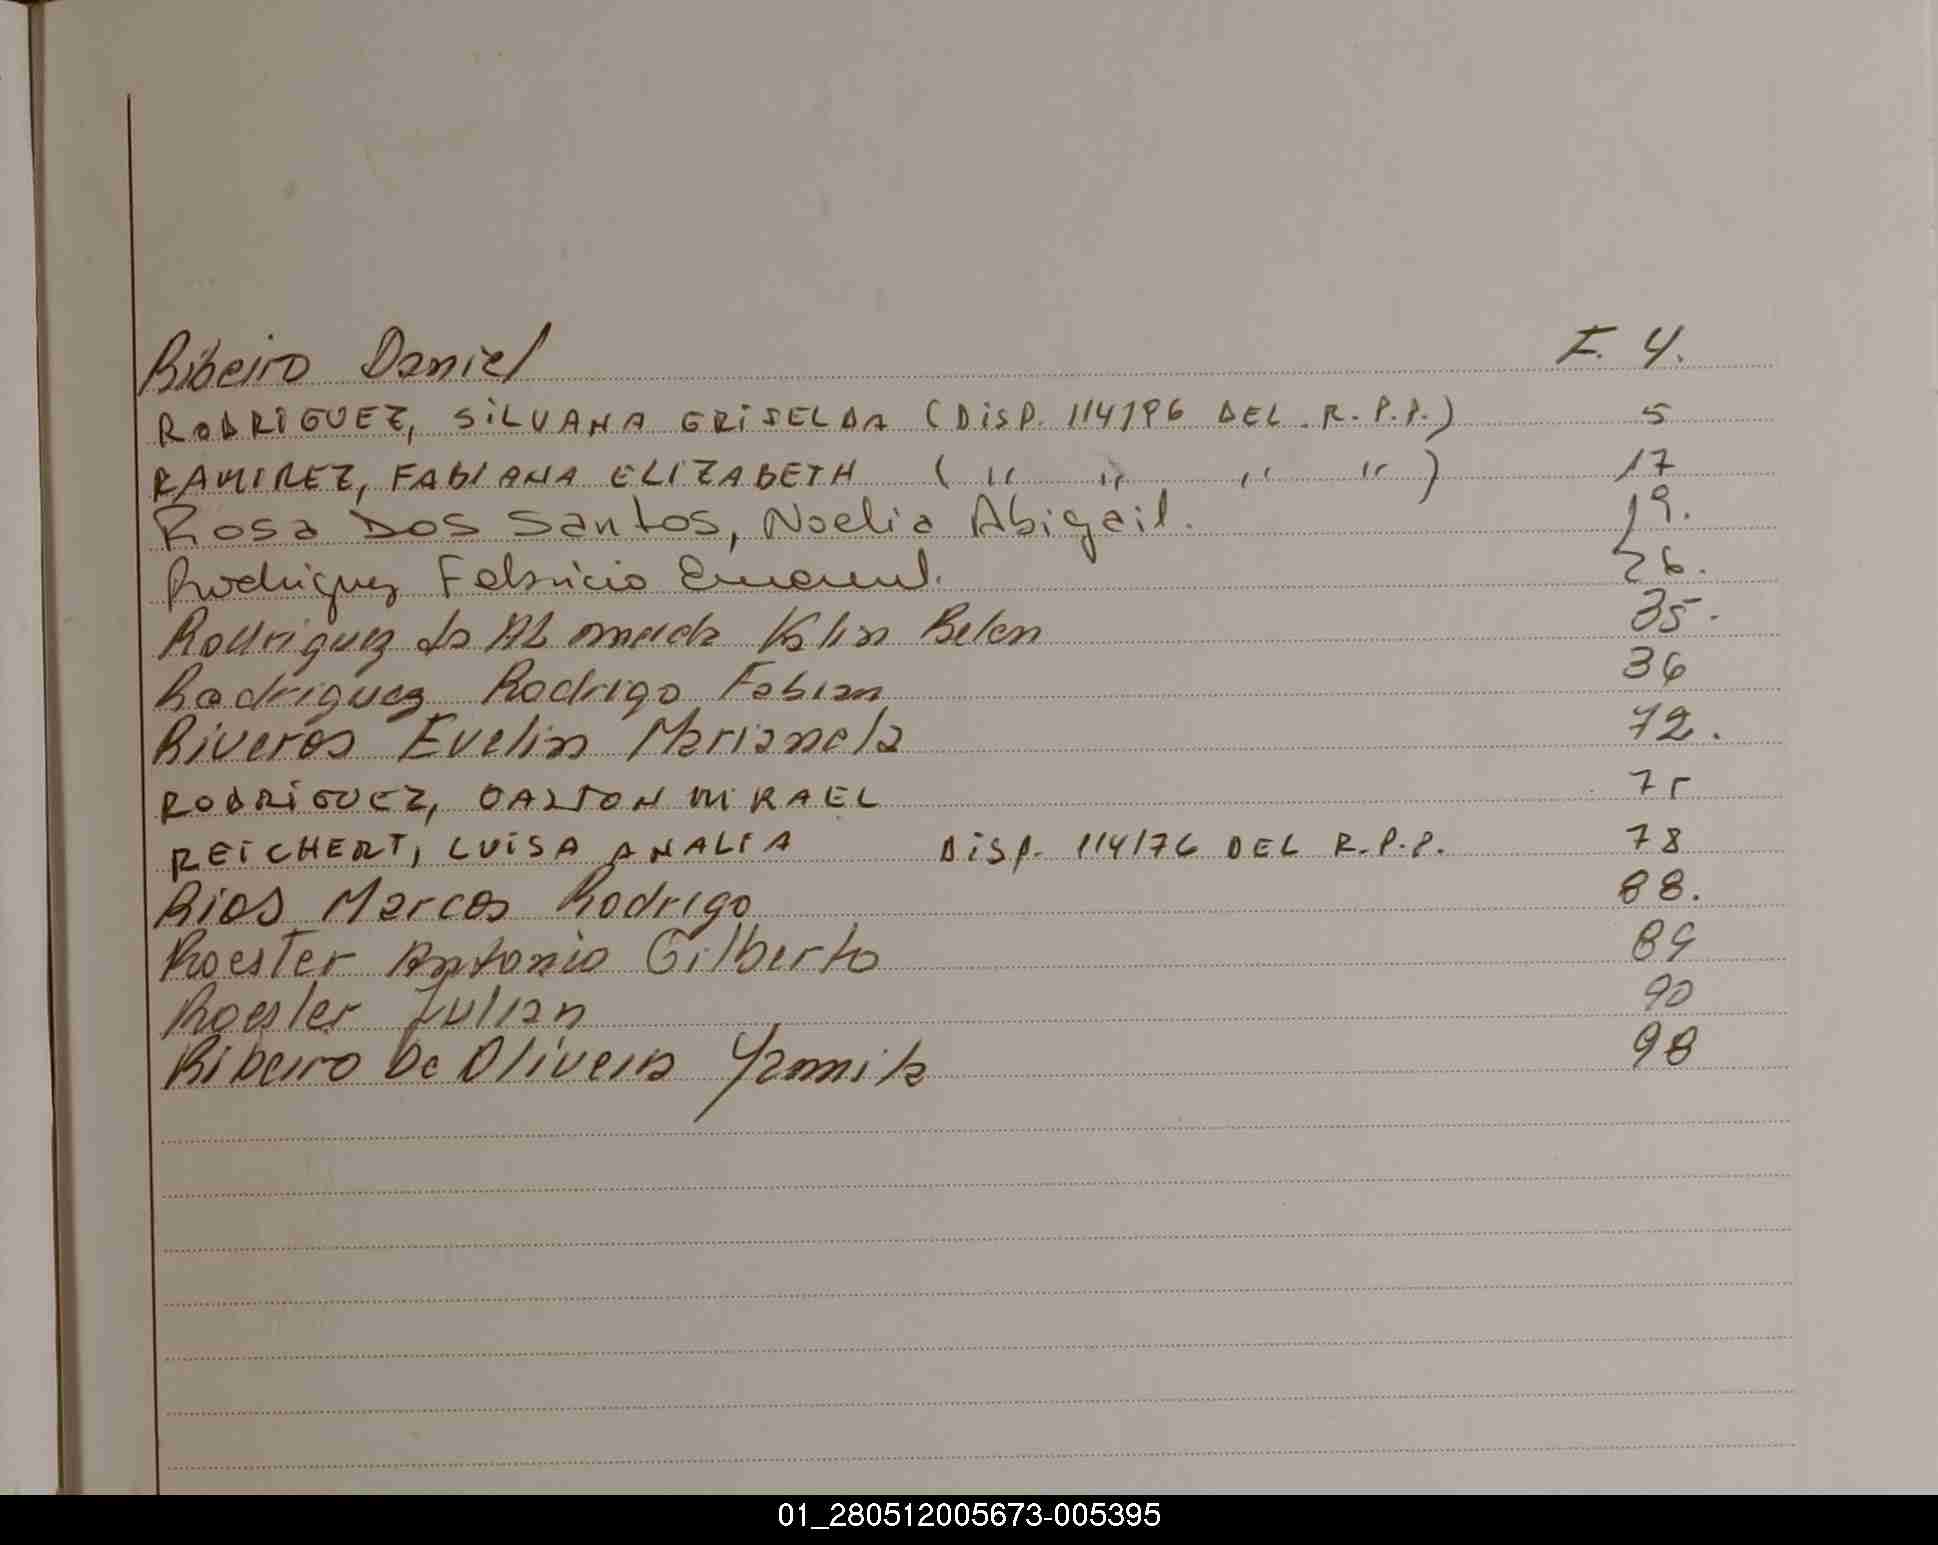 Ribeiro Daniel F. 4.
RODRIGUEZ, SILVANA GRISELDA (DISP. 114796 DEL R.P.P.) 5
RAMIREZ, FABIANA ELIZABETH ( " " " " ) 17
Rosa Dos Santos, Noelia Abigail. 19.
Rodriguez Fabricio Emanuel. 26.
Rodriguez Belen 35.
Rodriguez Rodrigo Fabian 36
Riveros Evelin Marianela 72.
RODRIGUEZ, 75
REICHERT, LUISA ANALIA DISP. 114/76 DEL R.P.P. 78
Rios Marcos Rodrigo 88.
Roester Antonio Gilberto 89
Roesler Julian 90
Ribeiro De Olivera Yamila 98
01_280512005673-005395